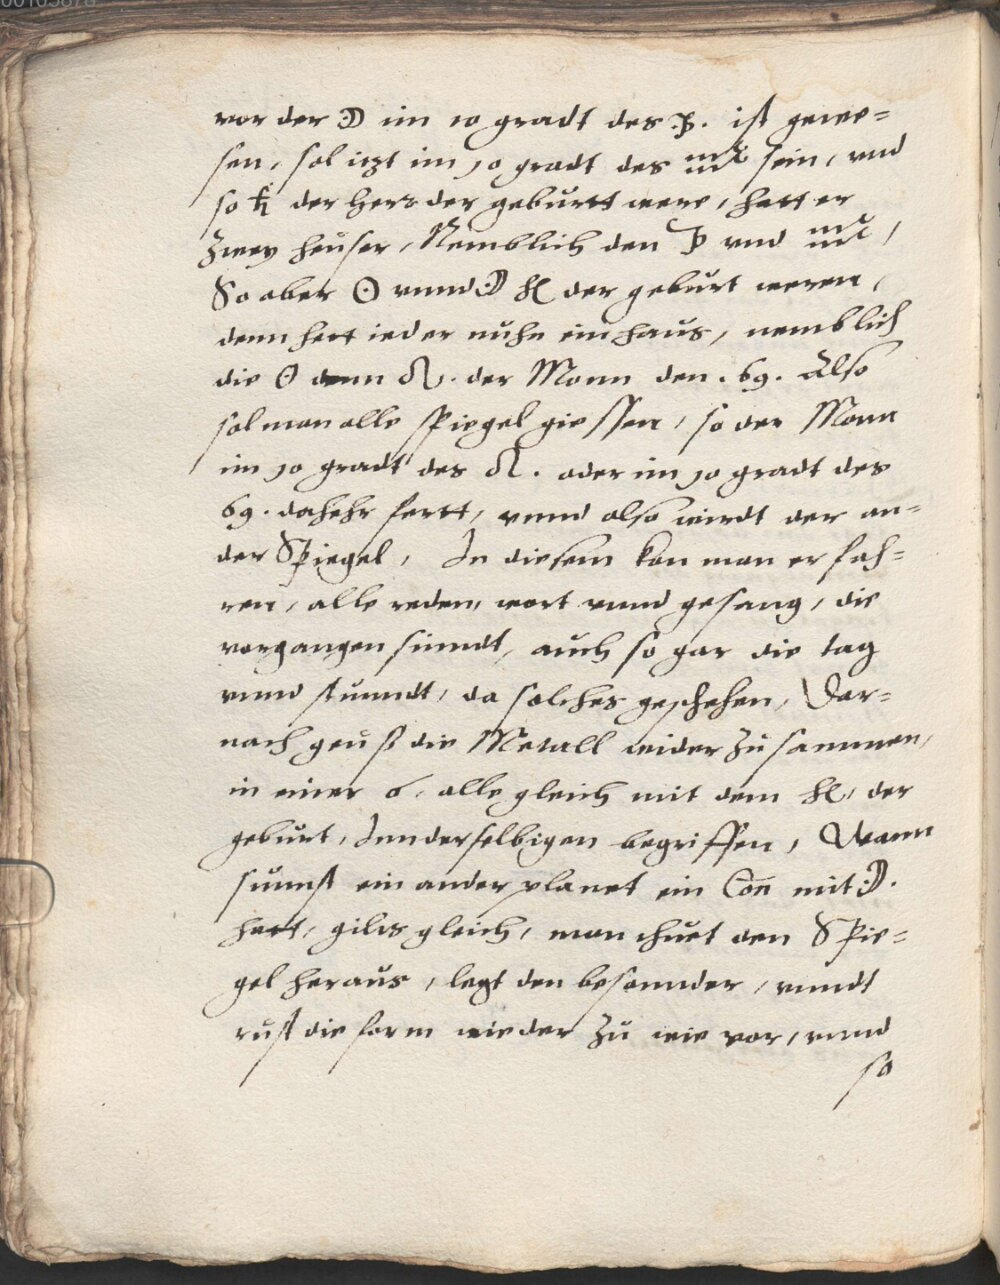 00105878
vor der ☽ im 10 gradt des ♑. ist gewe=
sen, sol itzt im 10 gradt des ♒ sein, vnd
so ♄ der herr der geburtt were, hatt er
zwey heuser, Nemblich den ♑ vnd ♒,
So aber ☉ vnnd ☽ H der geburt weren,
denn hett ieder nuhn ein haus, nemblich
die ☉ denn ♌. der Monn den. ♋. Also
sol man alle spiegel giessen, so der Monn
im 10 gradt des ♌. oder im 10 gradt des
♋. dahehr fertt, vnnd also wirdt der an=
der Spiegel, In diesem kan man erfah=
ren, alle reden, wort vnnd gesang, die
vorgangen sinndt, auch so gar die tag
vnnd stunndt, da solches geschehen, Dar=
nach geuß die Metall wider zusammen,
in einer ☌, alle gleich mit dem H, der
geburt, Inn derselbigen begriffen, Wann
sunst ein ander planet ein Con mit ☽.
hatt, gilts gleich, man thuet den Spie=
gel heraus, legt den besonnder, vnndt
rust die form wieder zu wie vor, vnnd
so